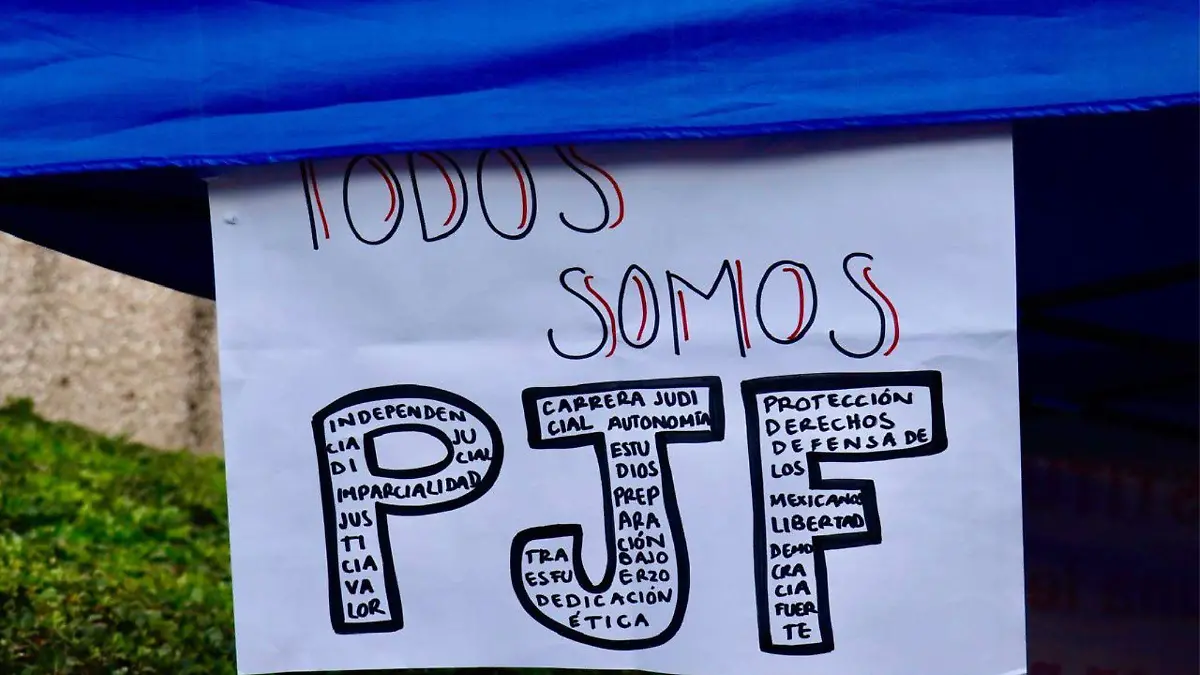 TODOS
SOMOS
PJF
INDEPENDEN
CIA JU
DI CIAL
IMPARCIALIDAD
JUS
TI
CIA
VA
LOR
CARRERA JUDI
CIAL AUTONOMÍA
ESTU
DIOS
PREP
ARA
CIÓN
TRA BAJO
ESFU ERZO
DEDICACIÓN
ÉTICA
PROTECCIÓN
DERECHOS
DEFENSA DE
LOS
MEXICANOS
LIBERTAD
DEMO
CRA
CIA
FUER
TE